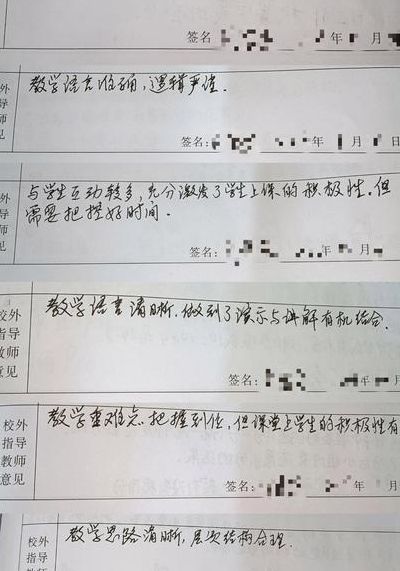 签名 年 月
教学语言准确,逻辑严谨.
外
导
师
见
签名: 年 月 日
与学生互动较多,充分激发了学生上课的积极性.但
需要把握好时间.
外
导
师
见
签名: 年 月
教学语言清晰.做到了演示与讲解有机结合.
校外
指导
教师
意见
签名: 年 月
教学重难点把握到位,但课堂上学生的积极性有
校外
指导
教师
意见
签名: 年 月
教学思路清晰,层次结构合理.
校外
指导